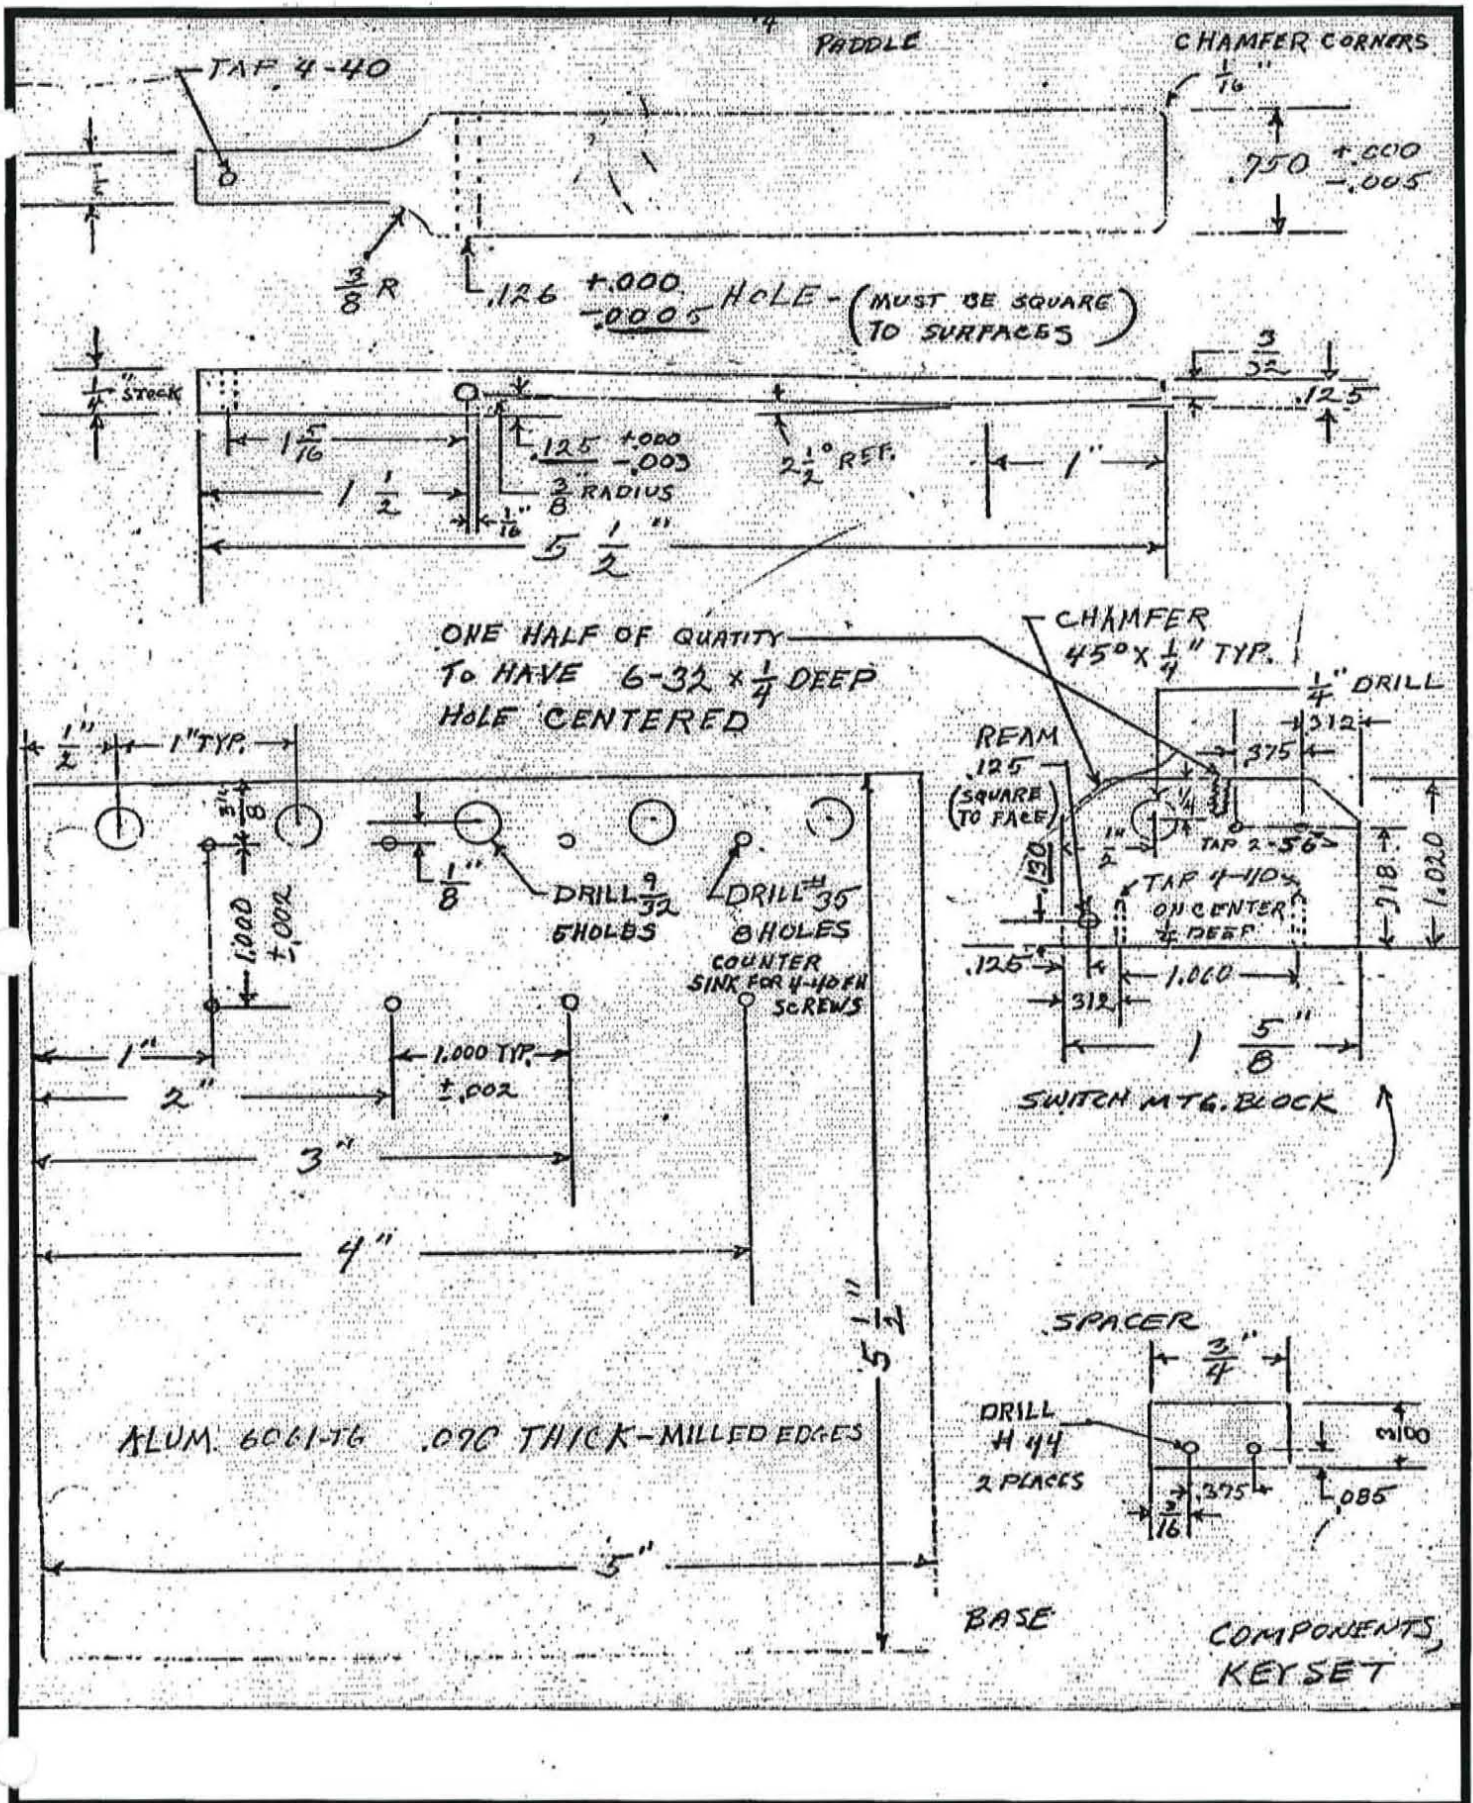 PADDLE
CHAMFER CORNERS
1/16"
TAP 4-40
.750 +.000 -.005
3/8 R
.126 +.000 -.0005 HOLE - (MUST BE SQUARE
TO SURFACES)
1/4" STOCK
3/32
.125
1 5/16
.125 +.000 -.003
2 1/2° REF.
1"
1 1/2
3/8" RADIUS
1/16"
5 1/2"
ONE HALF OF QUATITY
TO HAVE 6-32 x 1/4 DEEP
HOLE CENTERED
CHAMFER
45° x 1/4" TYP.
1/4" DRILL
.312
.375
REAM
.125
(SQUARE
TO FACE)
1/4
1/2"
TAP 2-56
.130
TAP 4-40
ON CENTER
1/4 DEEP
.718
1.020
.125
1.060
.312
1 5/8"
SWITCH MTG. BLOCK
1/2"
1" TYP.
3/8"
1/8"
1.000 ±.002
DRILL 9/32
5 HOLES
DRILL #35
8 HOLES
COUNTER
SINK FOR 4-40 FH
SCREWS
1"
1.000 TYP.
±.002
2"
3"
4"
5 1/2"
ALUM. 6061-T6 .090 THICK-MILLED EDGES
5"
BASE
SPACER
3/4"
DRILL
# 44
2 PLACES
3/8
.375
.085
3/16
COMPONENTS,
KEYSET